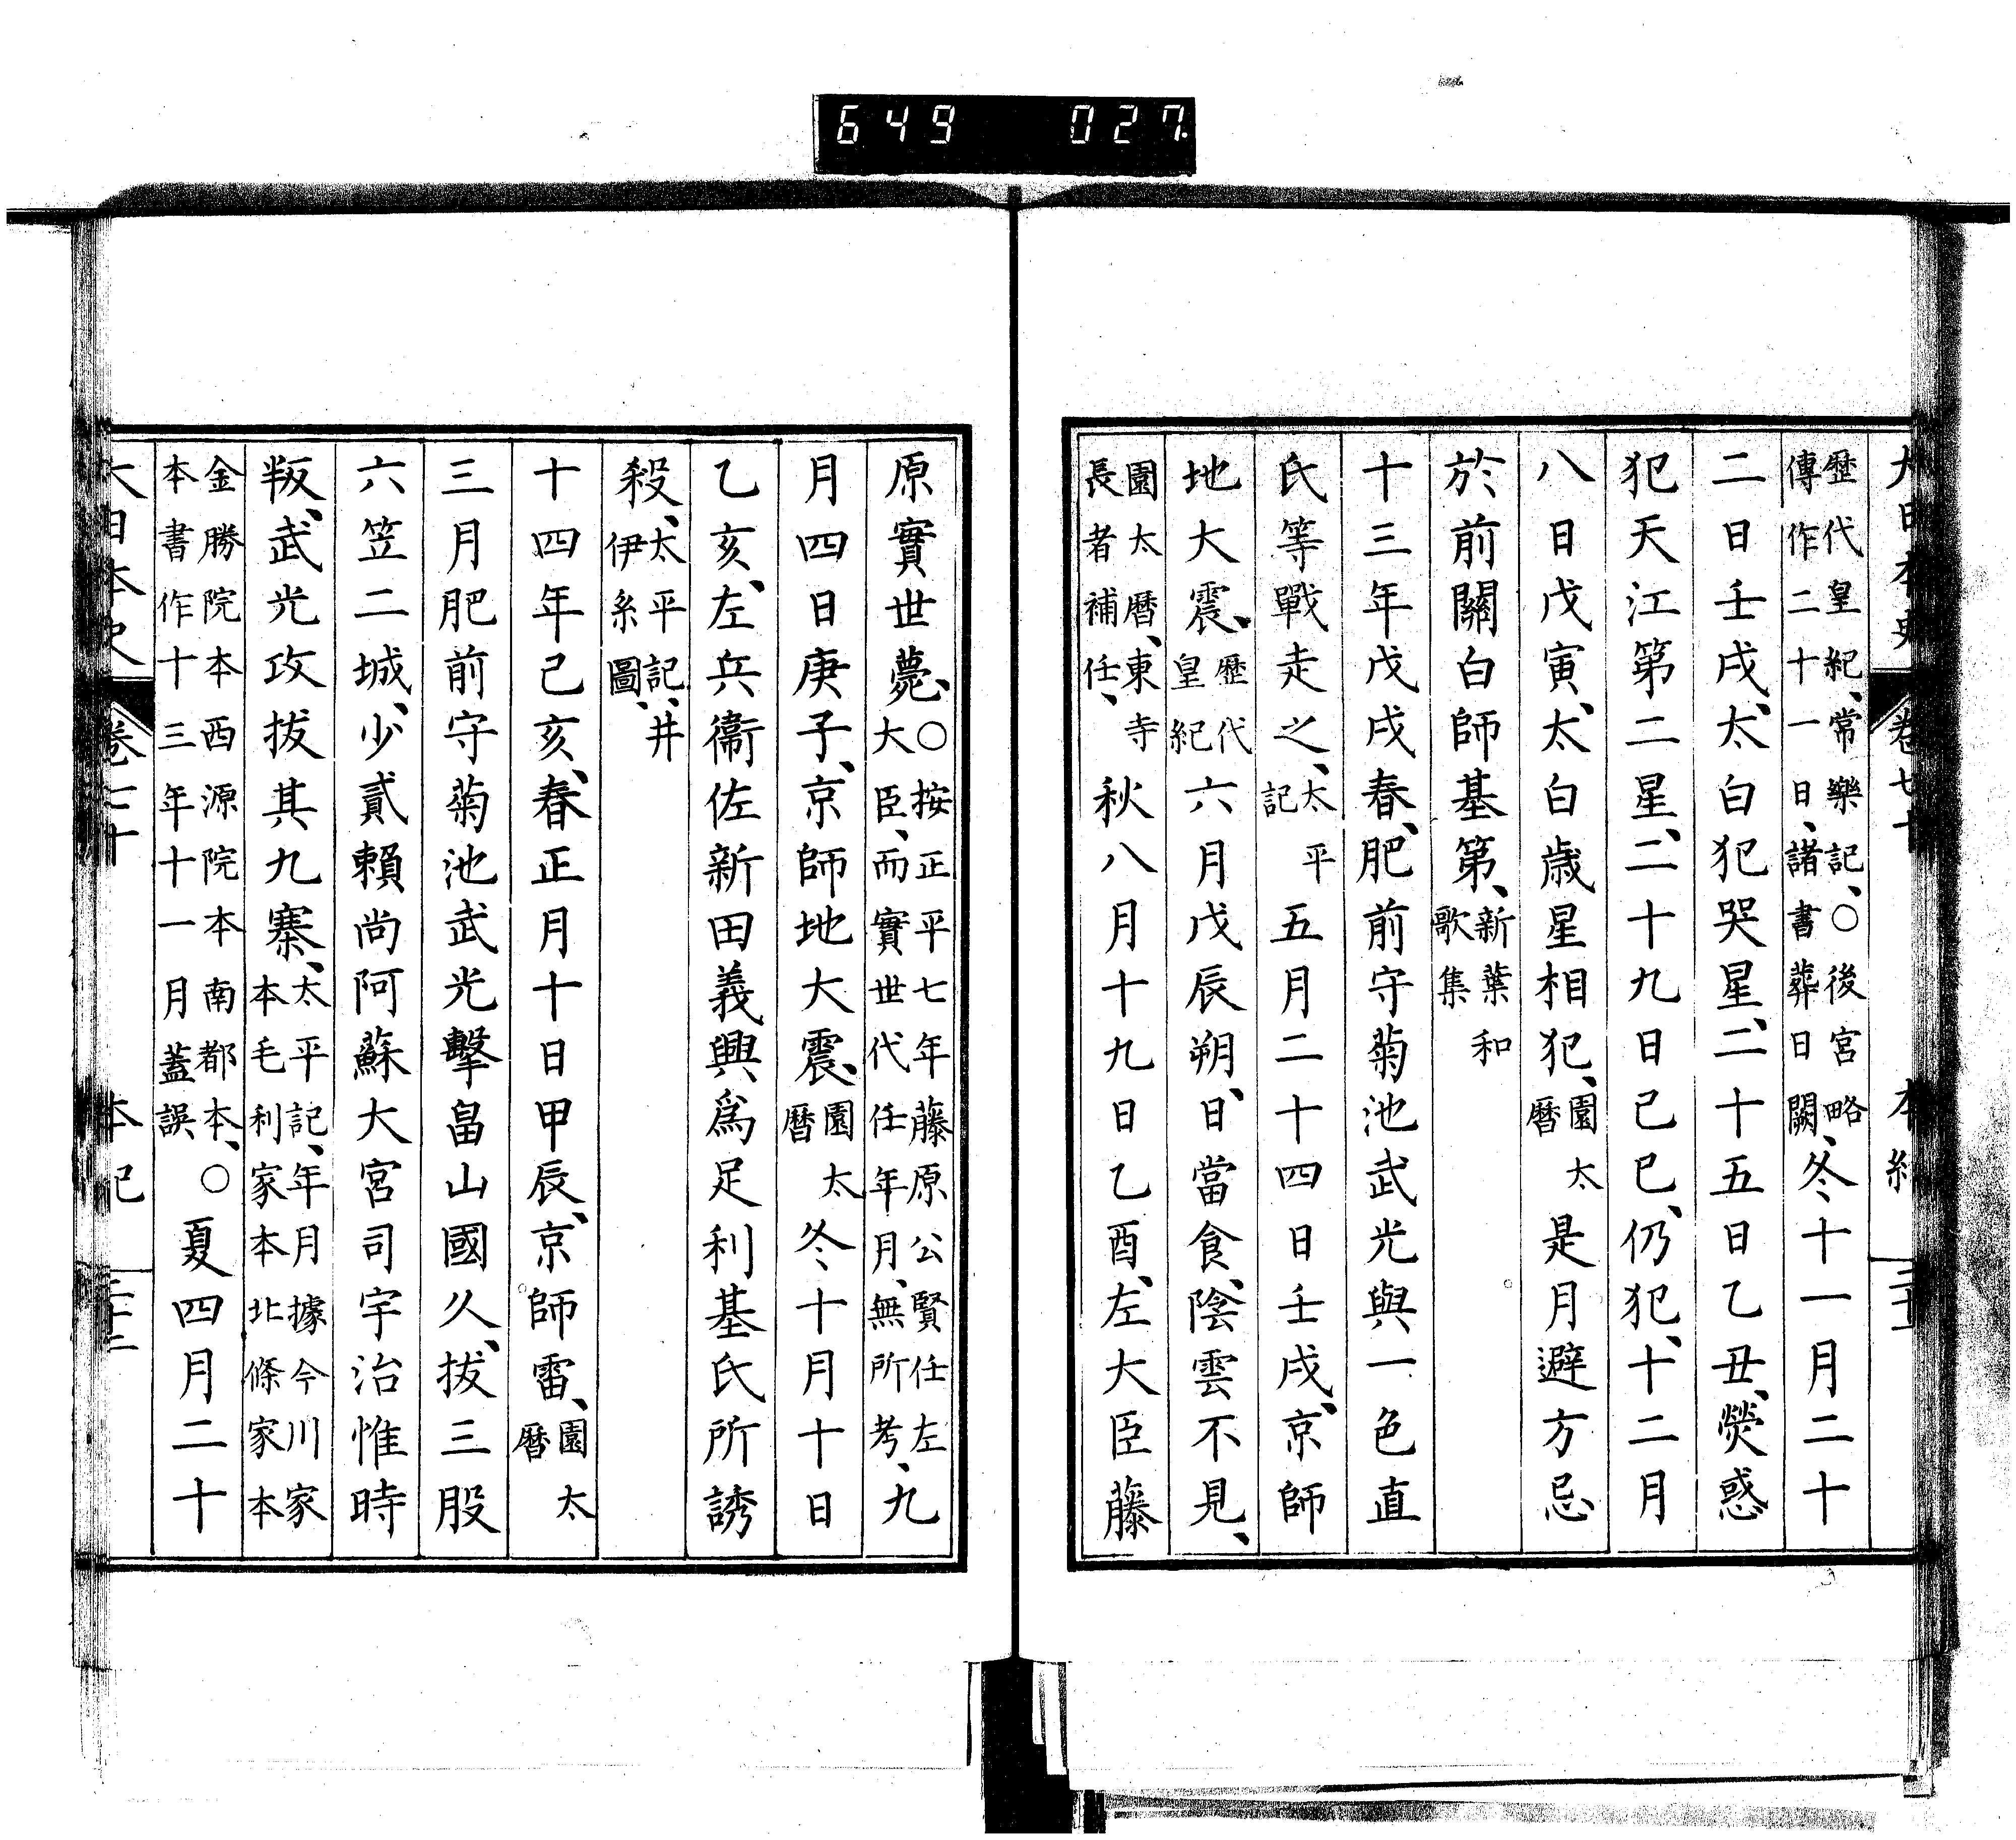 649 027
大日本史 卷七十 本紀
歷代皇紀、常樂記、○後宮略
傳作二十一日、諸書葬日闕、冬十一月二十
二日壬戌、太白犯哭星、二十五日乙丑、熒惑
犯天江第二星、二十九日己巳、仍犯、十二月
八日戊寅、太白歲星相犯、園太曆是月避方忌
於前關白師基第、新葉和歌集
十三年戊戌春、肥前守菊池武光與一色直
氏等戰走之、太平記五月二十四日壬戌、京師
地大震、歷代皇紀六月戊辰朔、日當食、陰雲不見、
園太曆、東寺長者補任、秋八月十九日乙酉、左大臣藤
原實世薨、○按正平七年藤原公賢任左大臣、而實世代任年月、無所考、九
月四日庚子、京師地大震、園太曆冬十月十日
乙亥、左兵衞佐新田義興爲足利基氏所誘
殺、太平記、井伊系圖、
十四年己亥、春正月十日甲辰、京師雷、園太曆
三月肥前守菊池武光擊畠山國久、拔三股
六笠二城、少貳賴尚阿蘇大宮司宇治惟時
叛、武光攻拔其九寨、太平記、年月據今川家本毛利家本北條家本
金勝院本西源院本南都本、○本書作十三年十一月蓋誤夏四月二十
大日本史 卷七十 本紀